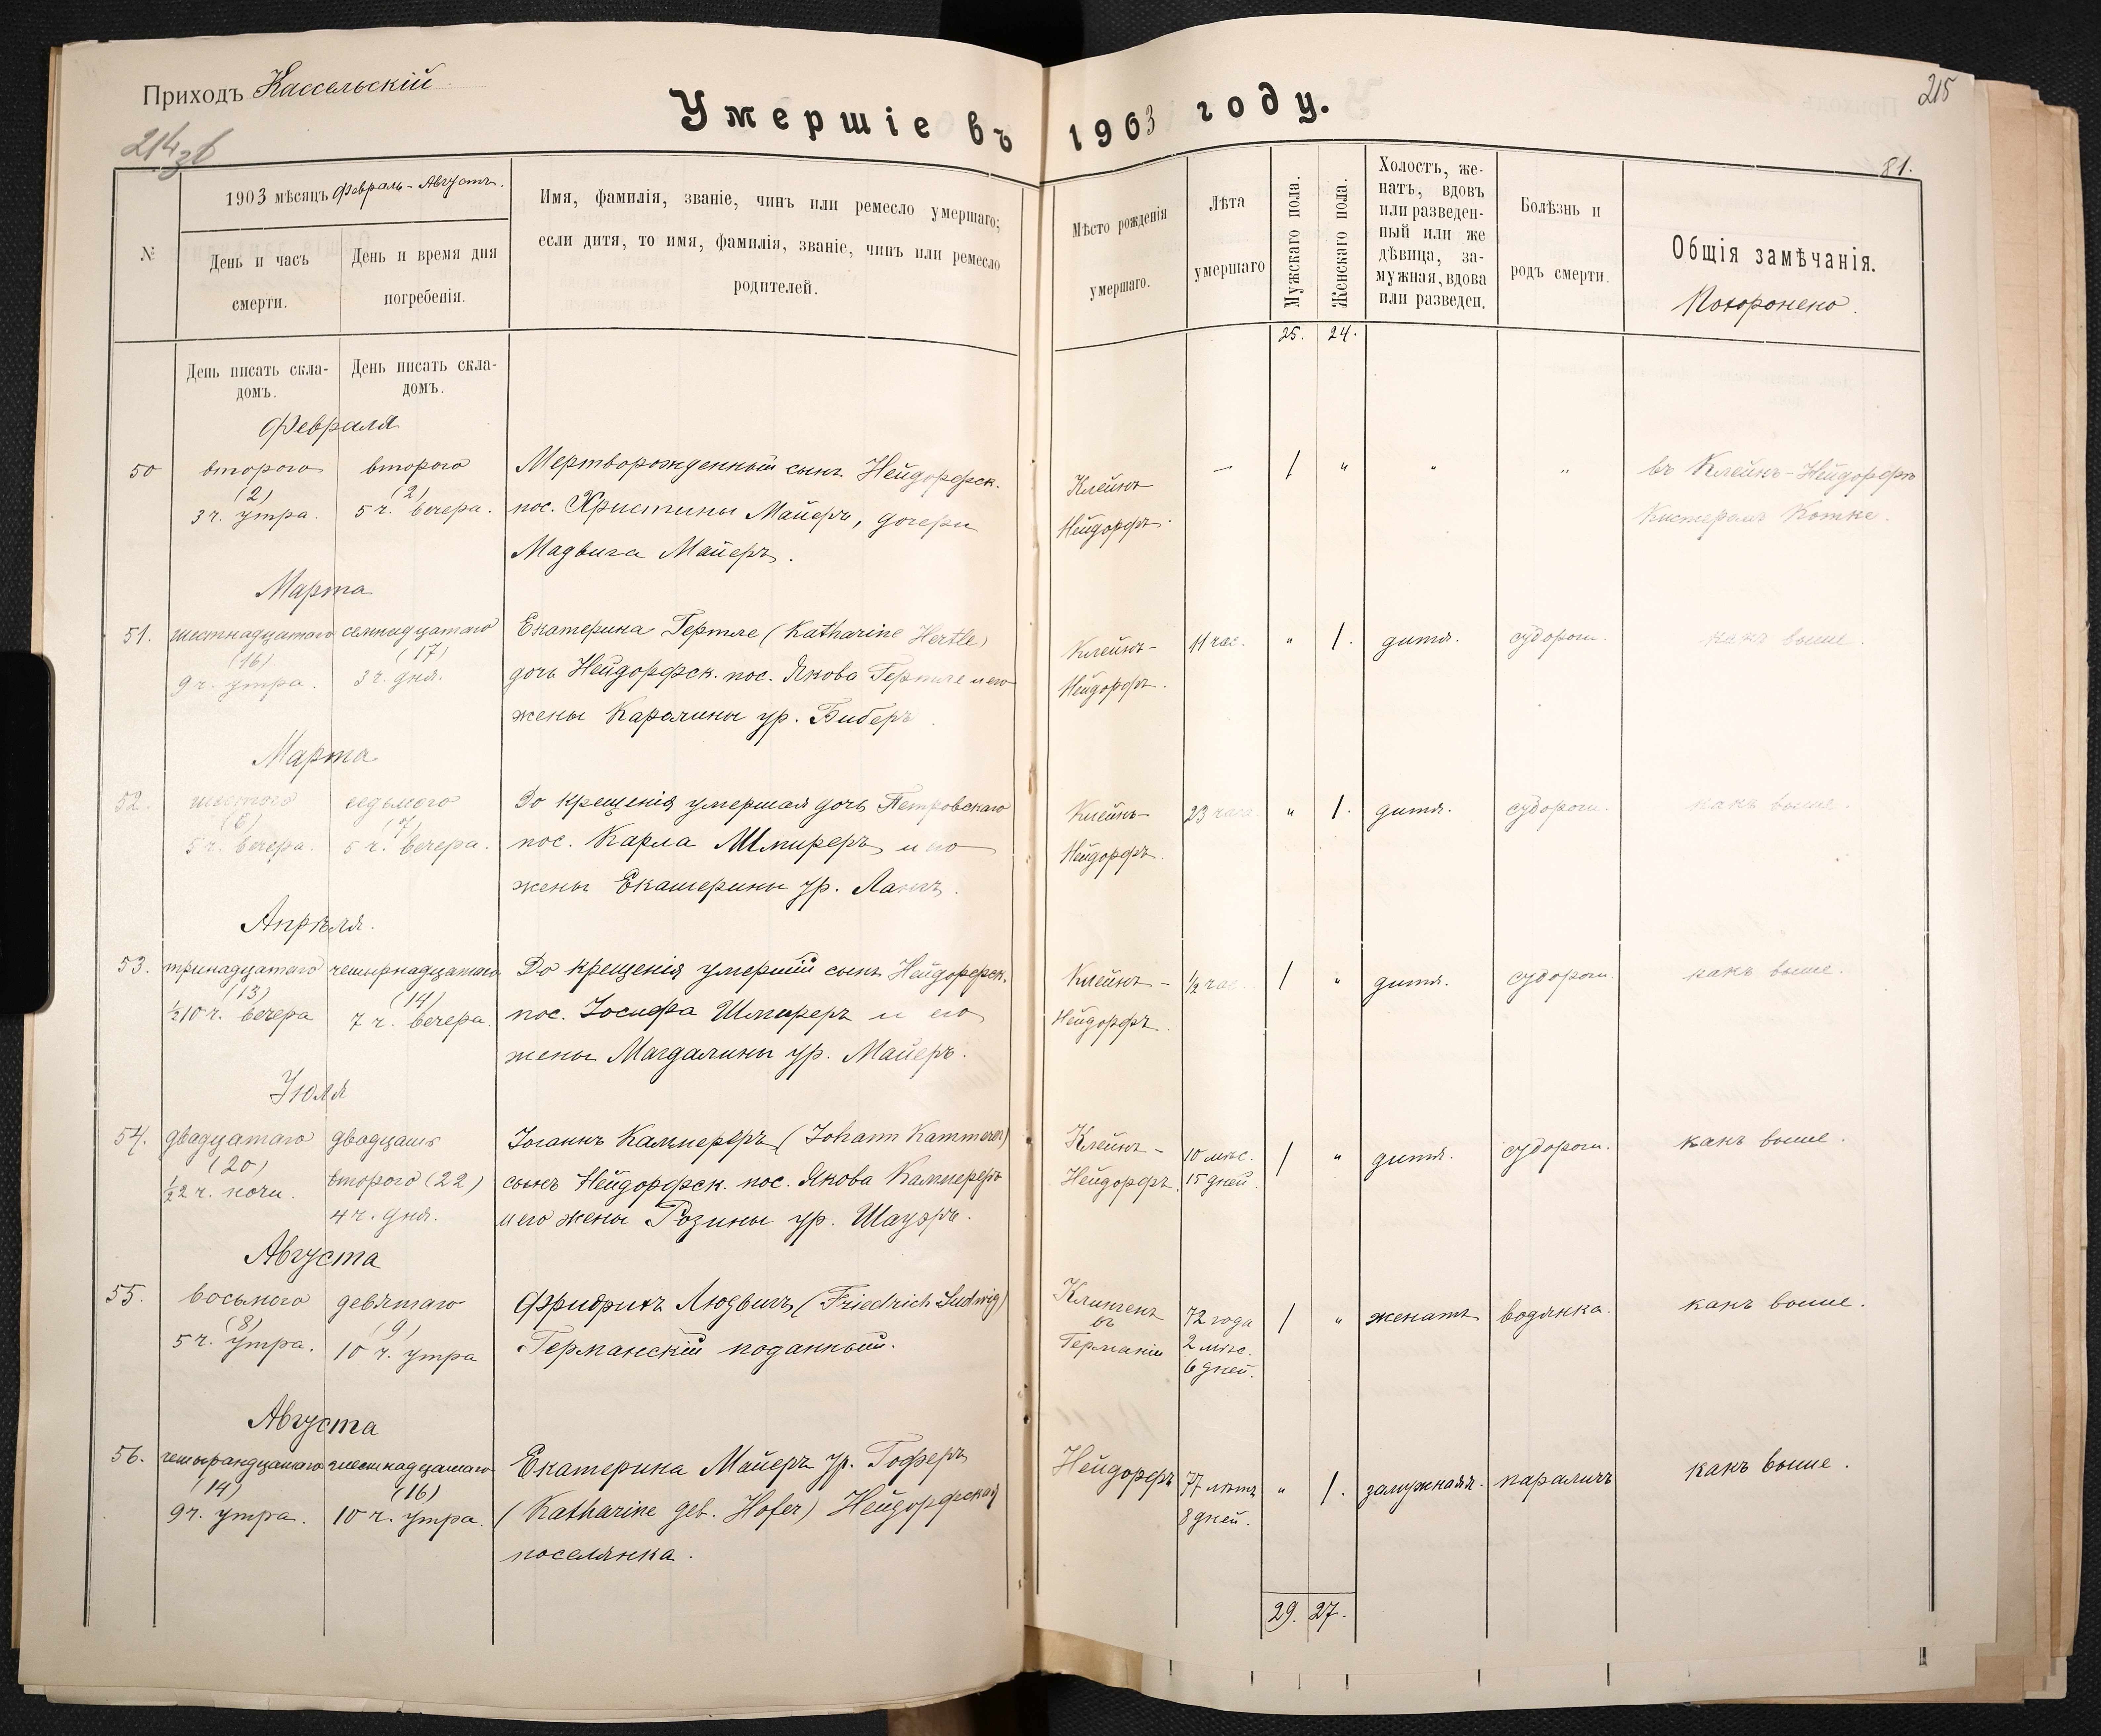 Приходъ Кассельскій
214 зб
Умершіе въ 1903 году.
215
81.
№
1903 мѣсяцъ Февраль - Августъ.
День и часъ
смерти.
День и время дня
погребенія.
Имя, фамилія, званіе, чинъ или ремесло умершаго;
если дитя, то имя, фамилія, званіе, чинъ или ремесло
родителей.
Мѣсто рожденія
умершаго.
Лѣта
умершаго
Мужскаго пола.
Женскаго пола.
Холостъ, же-
натъ, вдовъ
или разведен-
ный или же
дѣвица, за-
мужная, вдова
или разведен.
Болѣзнь и
родъ смерти.
Общія замѣчанія.
Похоронено.
25. 24.
День писать скла-
домъ.
День писать скла-
домъ.
Февраля
50 второго
(2)
3 ч. утра.
второго
(2)
5 ч. вечера.
Мертворожденный сынъ Нейдорфск.
пос. Христины Майеръ, дочери
Мадвига Майеръ.
Клейнъ
Нейдорфъ.
— 1 " " "
въ Клейнъ-Нейдорфѣ
Кистеромъ Котке.
Марта
51. шестнадцатаго
(16)
9 ч. утра.
семнадцатаго
(17)
3 ч. дня.
Екатерина Гертле (Katharine Hertle)
дочь Нейдорфск. пос. Якова Гертле и его
жены Каролины ур. Биберъ.
Клейнъ-
Нейдорфъ.
11 час. " 1. дитя. судороги. какъ выше.
Марта
52. шестого
(6)
5 ч. вечера.
седьмого
(7)
5 ч. вечера.
До крещенія умершая дочь Петровскаго
пос. Карла Шпиреръ и его
жены Екатерины ур. Лангъ.
Клейнъ-
Нейдорфъ.
23 часа. " 1. дитя. судороги. какъ выше.
Апрѣля.
53. тринадцатаго
(13)
½10 ч. вечера
четырнадцатаго
(14)
7 ч. вечера.
До крещенія умершій сынъ Нейдорфск.
пос. Іосифа Шпиреръ и его
жены Магдалины ур. Майеръ.
Клейнъ-
Нейдорфъ.
½ час. 1 " дитя. судороги. какъ выше.
Іюля
54. двадцатаго
(20)
½2 ч. ночи.
двадцать
второго (22)
4 ч. дня.
Іоганнъ Каммереръ (Johann Kammerer)
сынъ Нейдорфск. пос. Якова Каммереръ
и его жены Розины ур. Шауэръ.
Клейнъ-
Нейдорфъ.
10 мѣс.
15 дней.
1 " дитя. судороги. какъ выше.
Августа
55. восьмого
(8)
5 ч. утра.
девятаго
(9)
10 ч. утра
Фридрихъ Людвигъ (Friedrich Ludwig)
Германскій поданный.
Клингенъ
въ
Германіи
72 года
2 мѣс.
6 дней.
1 " женатъ водянка. какъ выше.
Августа
56. четырандцатаго
(14)
9 ч. утра.
шестнадцатаго
(16)
10 ч. утра.
Екатерина Майеръ ур. Гоферъ
(Katharine geb. Hofer) Нейдорфская
поселянка.
Нейдорфъ
77 лѣтъ
8 дней.
" 1. замужная. параличъ какъ выше.
29. 27.